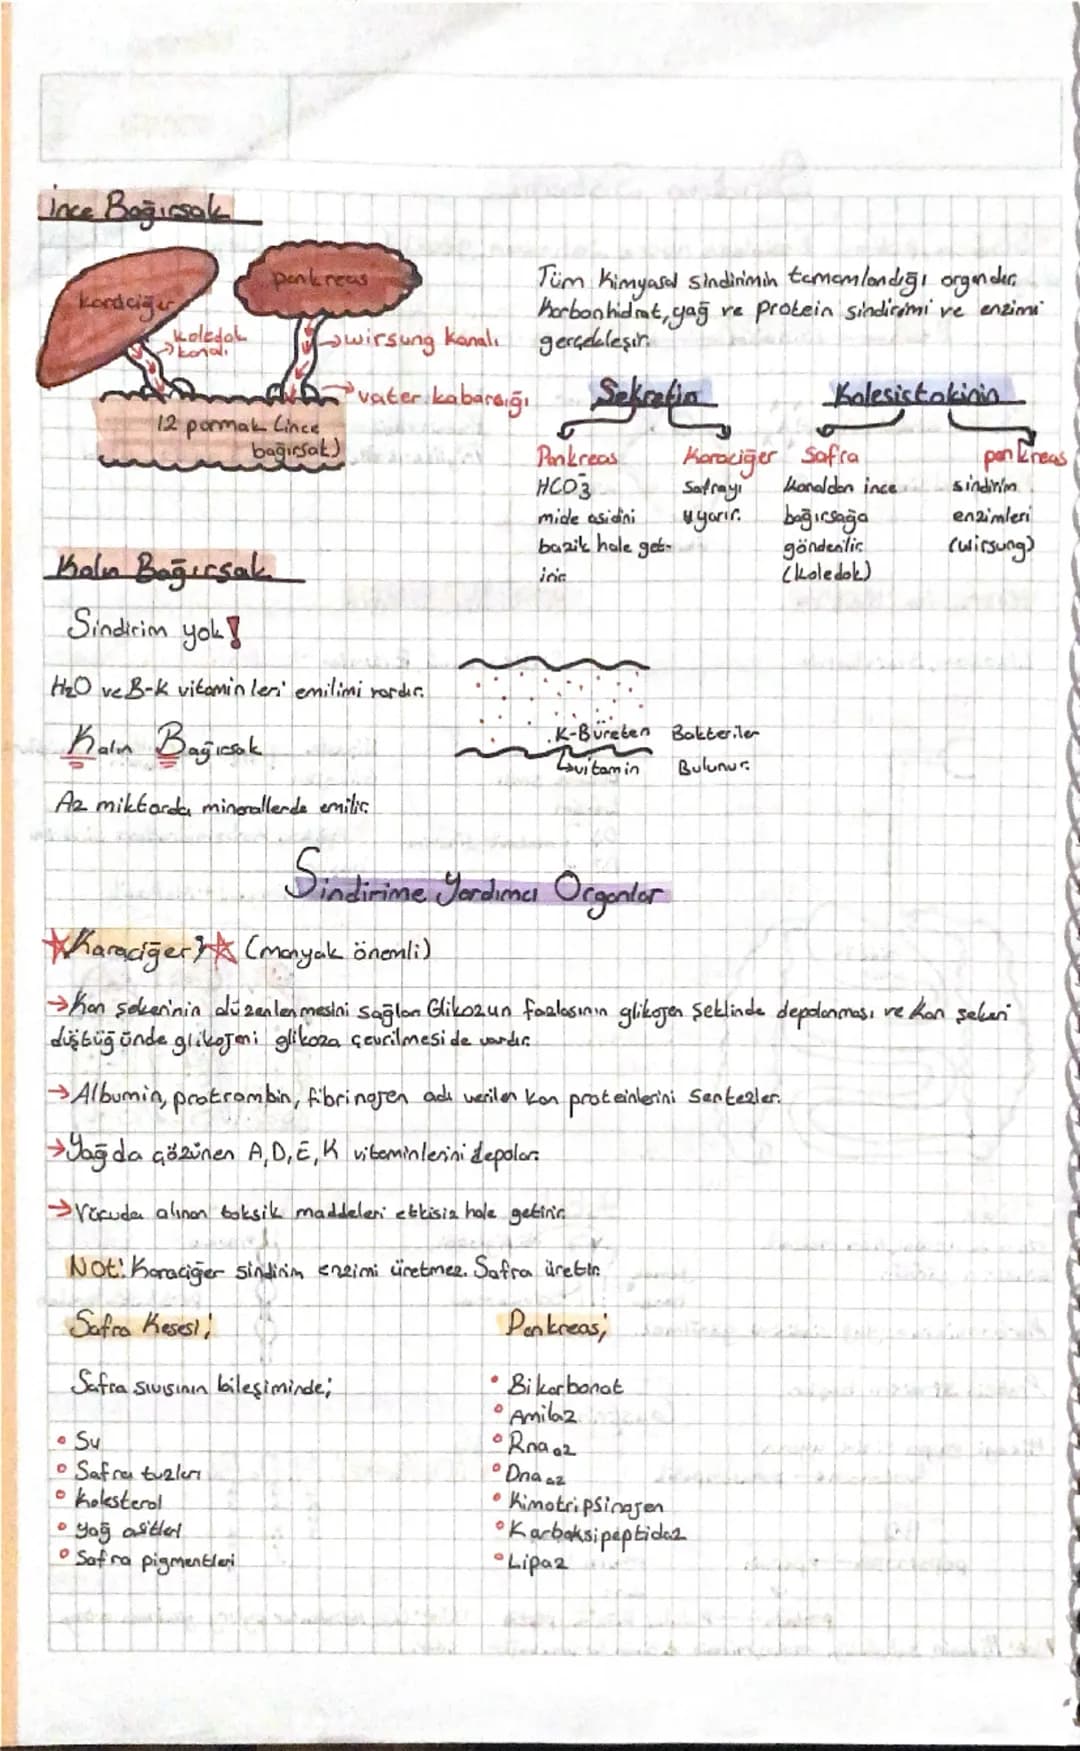 İnce Bağırsak
karaciğer
pankreas
koledok
kanalı
wirsung kanalı
vater kabarcığı
12 parmak (ince
bağırsak)
Tüm Kimyasal sindirimin tamamlandığı organdır.
Karbonhidrat, yağ ve protein sindirimi ve enzimi
gerçekleşir.
Sekretin
Kolesistokinin
Pankreas
HCO3⁻
mide asidini
bazik hale get-
irir
Karaciğer
Safrayı
uyarır.
Safra
kanaldan ince
bağırsağa
gönderilir
(koledok)
pankreas
sindirim
enzimleri
(wirsung)
Kalın Bağırsak
Sindirim yok!
H2O ve B-K vitaminleri emilimi vardır.
Kalın Bağırsak
Az miktarda minerallerde emilir.
K-B üreten Bakteriler
vitamin Bulunur.
Sindirime Yardımcı Organlar
Karaciğer; (manyak önemli)
→Kan şekerinin düzenlenmesini sağlar. Glikozun fazlasının glikojen şeklinde depolanması ve kan şekeri
düştüğünde glikojeni glikoza çevrilmesi de vardır.
→Albumin, protrombin, fibrinojen adı verilen kan proteinlerini sentezler.
→Yağda çözünen A, D, E, K vitaminlerini depolar.
→Vücuda alınan toksik maddeleri etkisiz hale getirir.
Not: Karaciğer sindirim enzimi üretmez. Safra üretir.
Safra Kesesi;
Safra sıvısının bileşiminde;
• Su
• Safra tuzları
• Kolesterol
• Yağ asitleri
• Safra pigmentleri
Pankreas;
• Bikarbonat
• Amilaz
• Rnaaz
• Dnaaz
• Kimotripsinojen
• Karboksipeptidaz
• Lipaz